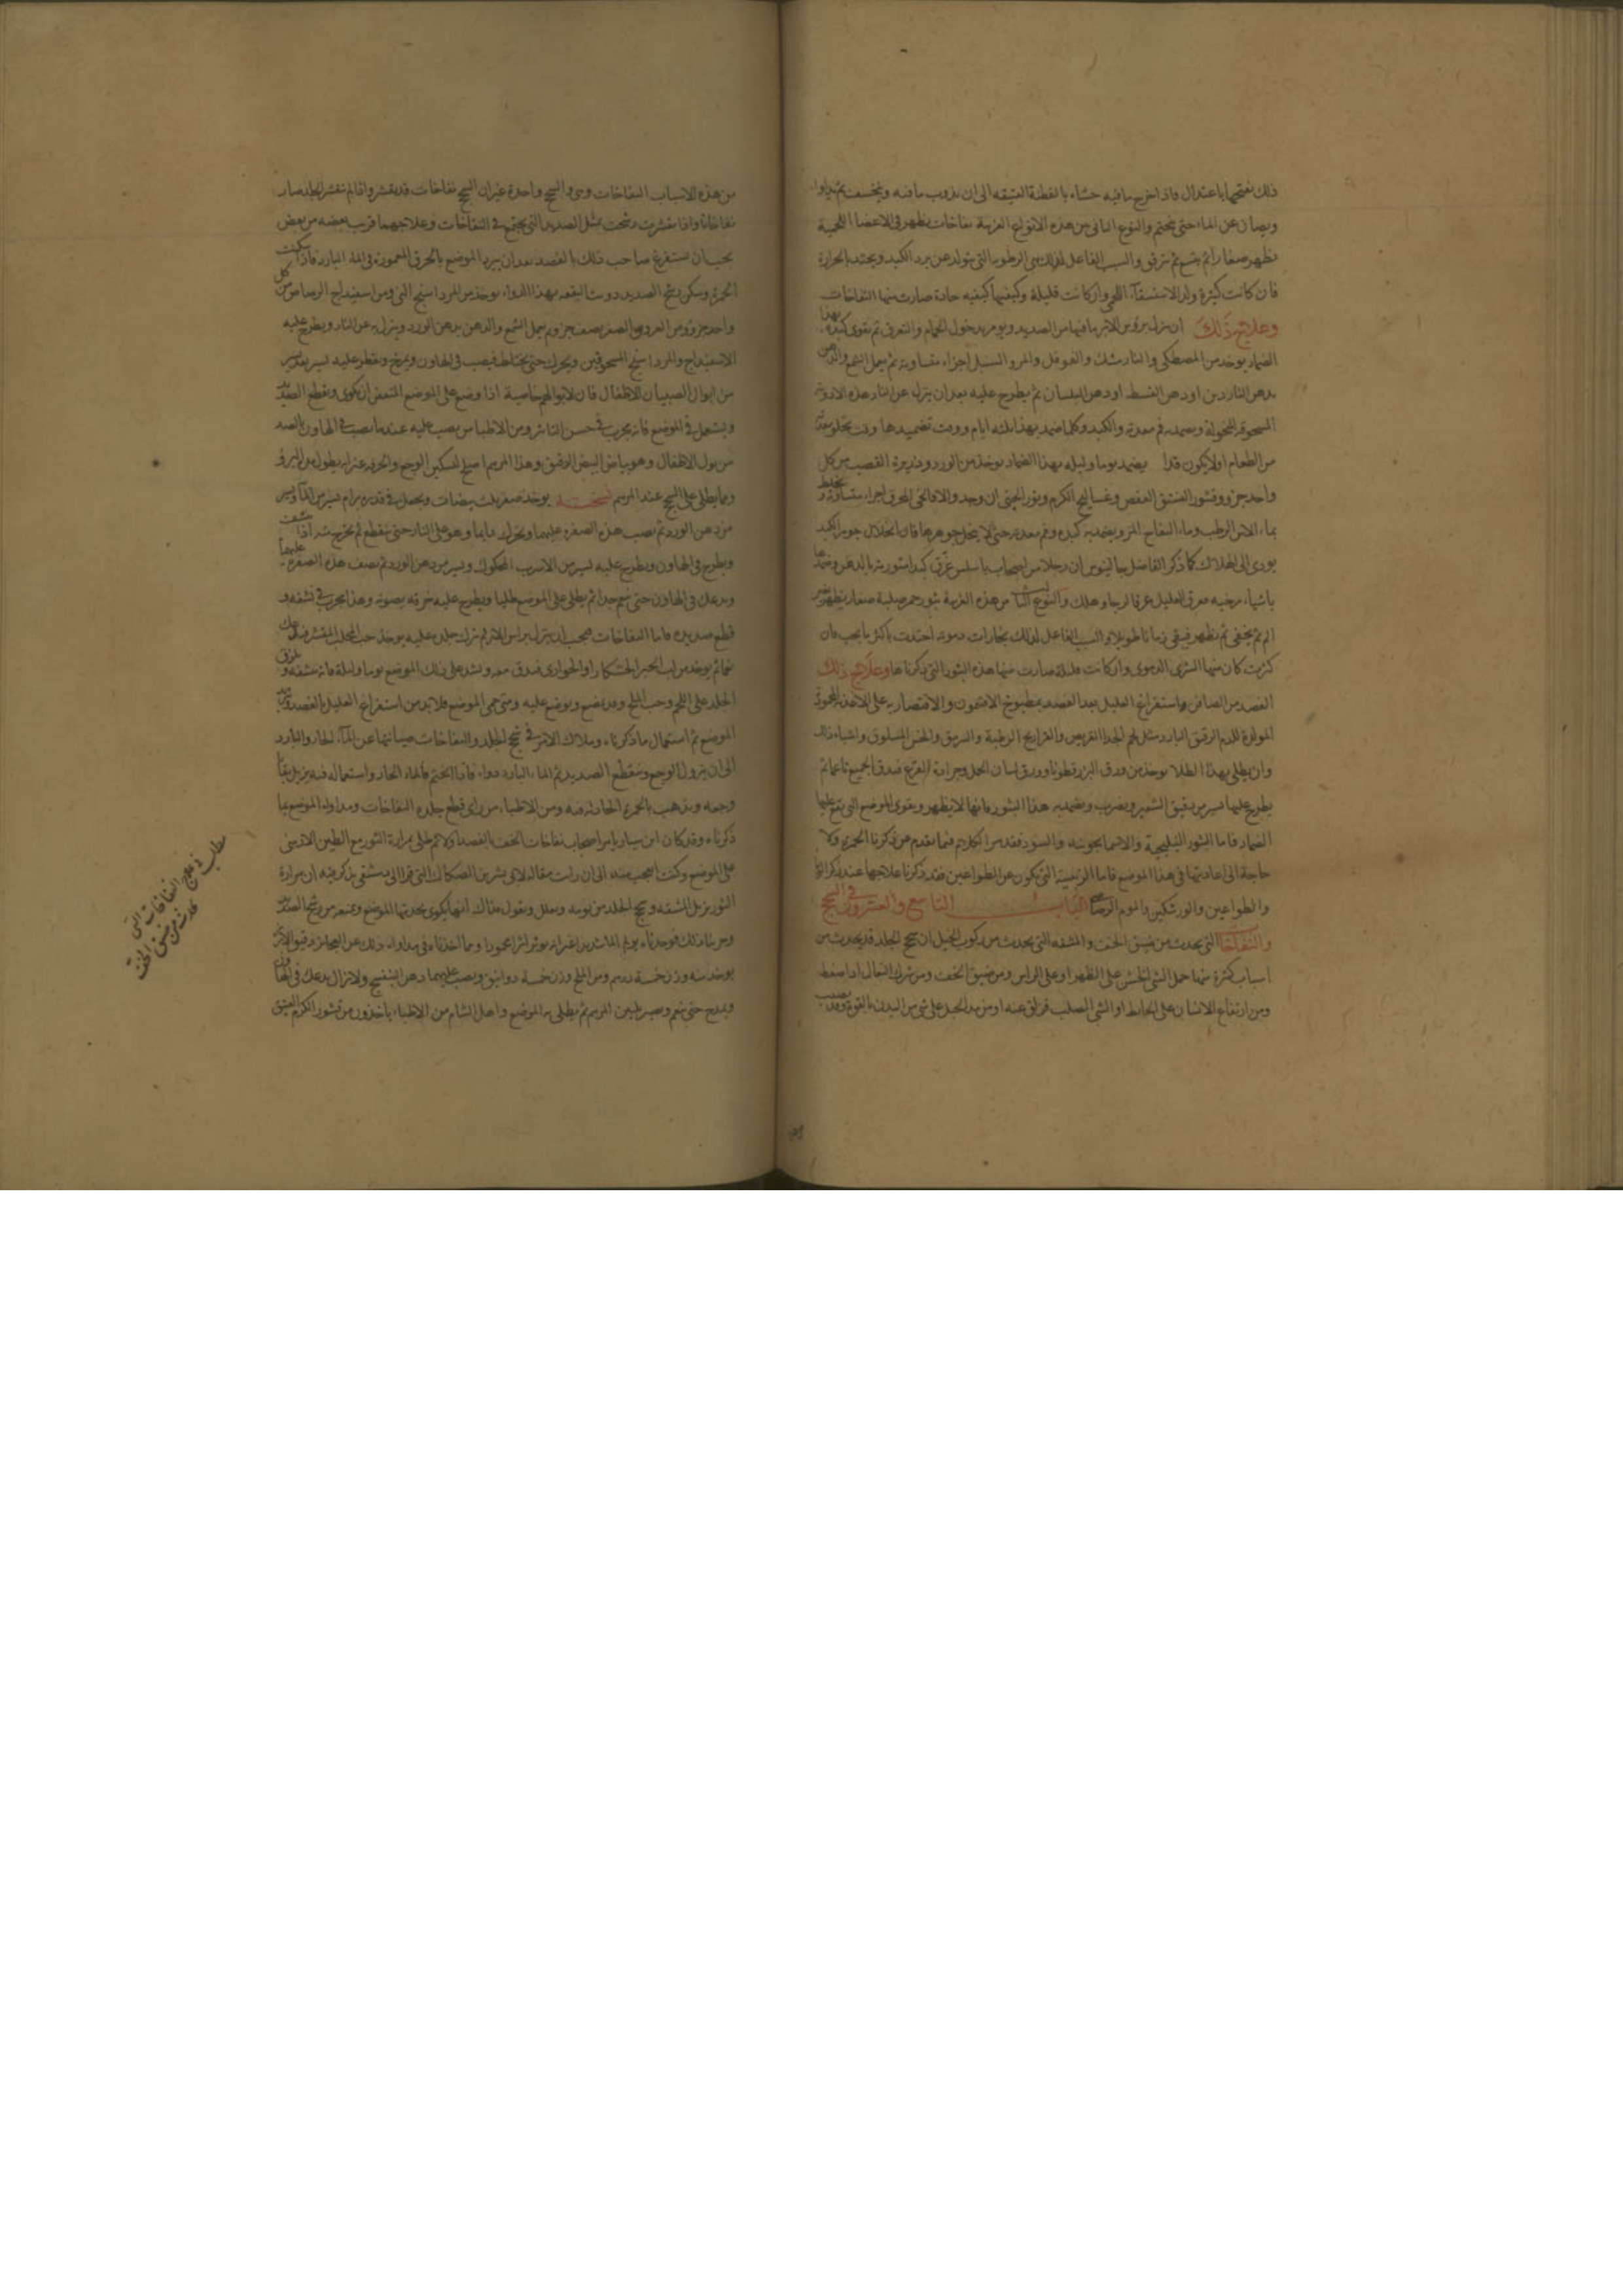 ذلك نفتحها باعتدال فاذا خرج ما فيه حشاه بالقطنة العتيقة الى ان يذوب ما فيه
ويصان عن الماء حتى يختم والنوع الثانى من هذه الانواع الغريبة نفاخات تظهر فى الاعضا اللحمية
تظهر صغارا ثم يتسع ثم يترقق والسبب الفاعل لذلك هى الرطوبة التى يتولد عن برد الكبد ويحتد بالحرارة
فان كانت كثيرة ولد الاستسقآء اللحمى وان كانت قليلة وكيفيتها كيفيه حادة صارت منها النفاخات
وعلاج ذلك ان يزل ما فيها من الصديد ويومر بدخول الحمام والتعرق ثم يقوى كبده بهذا
الضماد يوخذ من المصطكى والنارمشك والفوفل والمر والسنبل اجزاء متساوية ثم يعمل الشمع والدهن
بدهن الناردين او دهن القسط او دهن البلسان ثم يطرح عليه بعد ان ينزل عن النار هذه الادوية
المسحوقة المنخولة ويضمد به فم معدته والكبد وكلما ضمد بهذا ثلثه ايام ووقت تضميدها وقت تخلو معدته
من الطعام اولا يكون يضمد يوما وليله بهذا الضماد يوخذ من الورد وذريرة القصب من كل
واحد جزو وقشور الفستق العفص وعساليج الكرم اجزاء متساوية ويخلط
بماء الاس الرطب وماء التفاح المز ويضمد به كبده وفم معدته حتى لا ينحل جوهرها فان انحلال جوهر الكبد
يودى الى الهلاك كما ذكر الفاضل جالينوس ان رجلا من اصحاب باسلس غرق كبد استوريه بالدهن وضمدها
باشياء مرخيه فعرق العليل عرقا لزجا وهلك والنوع الثالث من هذه الغريبة بثور حمر صلبة صغار يظهر
الم ثم يخفى ثم يظهر فيبقى زمانا طويلا والسبب الفاعل لذلك بخارات دموية احتدت باكثر ما يجب فان
كثرت كان منها الشرى الدموى وان كانت قليلة صارت منها هذه البثور التى ذكرناها وعلاج ذلك
الفصد من الصافن واستفراغ العليل بعد الفصد بمطبوخ الافتيمون والاقتصار به على الاغذية المحمودة
المولدة للدم الرقيق البارد مثل لحم الجدا القريص والفراريج الرطبة والسرمق والخس المسلوق واشباه ذلك
وان يطلى بهذا الطلا يوخذ من ورق البزرقطونا وورق لسان الحمل وجرادة القرع فيدق الجميع ناعما ثم
يطرح عليها يسير من دقيق الشعير ويضرب ويضمد به هذا البثور فانها لا يظهر ويقوى الموضع التى يقع عليها
الضماد فاما البثور البلخية والسود فقد مر الكلام فيما تقدم من ذكرنا الحمرة ولا
حاجة الى اعادتها فى هذا الموضع فاما التى يكون عن الطواعين فقد ذكرنا علاجها عند ذكرنا
والطواعين والورشكين الباب التاسع والعشرون فى السحج
والنفاخات التى يحدث من ضيق الخف والمشقه التى يحدث من ركوب الخيل ان سحج الجلد قد يحدث من
اسباب كثيرة منها حمل الشى الخشن على الظهر او على الراس ومن ضيق الخف ومن شراك النعال اذا ضغط
ومن ارتفاع الانسان على الحايط او الشى الصلب فزلق عنه او من مد الحبل على شى من البدن بالقوة وقد يصيب
من هذه الاسباب النفاخات وهى والسحج واحدة غير ان السحج نفاخات قد يقشر واذا لم يتقشر الجلد صار
نفاخات واذا تقشرت رشحت مثل الصديد التى يجتمع فى النفاخات وعلاجهما قريب بعضه من بعض
يجب ان يستفرغ صاحب ذلك بالفصد بعد ان يبرد الموضع بالخرق المغموسة فى الماء البارد فاذا سكنت
الحمرة وسكن رشح الصديد دويت البقعه بهذا الدواء يوخذ من المرداسنج ومن اسفيداج الرصاص من كل
واحد جزو ومن العروق الصفر نصف جزو ثم يعمل الشمع والدهن بدهن الورد وينزل به عن النار ويطرح عليه
الاسفيداج والمرداسنج المسحوقين ويحرك حتى يختلط فيصب فى الهاون ويمرخ ويقطر عليه يسير
من ابوال الصبيان الاطفال فان لابوالهم خاصية اذا وضع على الموضع ويقطع الصديد
ويستعمل فى الموضع فانه مجرب فى حسن التاثير ومن الاطبا من يصب عليه عندما يصب فى الهاون
من بول الاطفال وهو بياض البيض الرقيق وهذا المرهم اصلح لتسكين الوجع والحرقه غير انه يطول به البرؤ
ومما يطلى على السحج عند المرهم نسخته يوخذ صفر ثلث بيضات ويحصل فى قدر برام يسير من الماء ويسير
من دهن الورد ثم يصب هذه الصفرة عليهما ويحرك دايما وهو على النار حتى ينقطع ثم يخرج منه اذا نشف
ويطرح فى الهاون ويطرح عليه يسير من الاسرب المحكوك ويسير من دهن الورد ثم يصف هذه الصفرة عليهما
ويدعك فى الهاون حتى ينعم جدا ثم يطلى على الموضع طليا ويطرح عليه خرقة يصونه وهذا مجرب فى نشفه و
قطع صديده فاما النفاخات فيجب ان ينزل براس الابر ثم يترك جلده عليه يوخذ حب المحلب المقشر فيدعك
نعما ثم يوخذ من لب الخبز الخشكار او الحوارى فيدق معه ويشد على ذلك الموضع يوما وليلة فانه ينشفه ويلزق
الجلد على اللحم وحب الملح وقد يمضغ ويوضع عليه ومتى حمى الموضع فلا بد من استفراغ العليل بالفصد
الموضع ثم استعمال ما ذكرناه وملاك الامر فى سحج الجلد والنفاخات صيانتها عن المآء الحار والبارد
الى ان يزول الوجع وينقطع الصديد ثم الماء البارد دواه فاذا اختتم فالماء الحار واستعماله فيه يزيل بقايا
وجعه ويذهب بالحمرة الحادثة فيه ومن الاطباء من راى قطع جلدة النفاخات ومداواة الموضع بما
ذكرناه وقد كان ابن سيار يامر اصحاب نفاخات الخف بالفصد اولا ثم طلى بمرارة الثور مع الطين الارمنى
على الموضع وكنت اعجب منه الى ان رايت مقاله لابى بشر بن الصكاك التى قرا الى دمشقى يذكر فيه ان مرارة
الثور يزيل المشقه وسحج الجلد من يومه ويعلل ويقول هناك انها يكوى بحدتها الموضع ويمنعه من رشح الصديد
وجربنا ذلك فوجدناه يولم الما شديدا غير انه يوثر اثرا محمودا ومما اخذناه فى مداواه ذلك عن العجائز دقيق
يوخذ منه وزن خمسة دراهم ومن الملح وزن خمسة دوانيق ويصب عليهما دهن البنفسج ولا يزال يدعك فى الهاون
حتى ينعم ويصير طين المرهم ثم يطلى به الموضع واهل الشام من الاطباء ياخذون من قشور الكرم العتيق
مطلب فى علاج النفاخات التى
تحدث من ضيق الخف